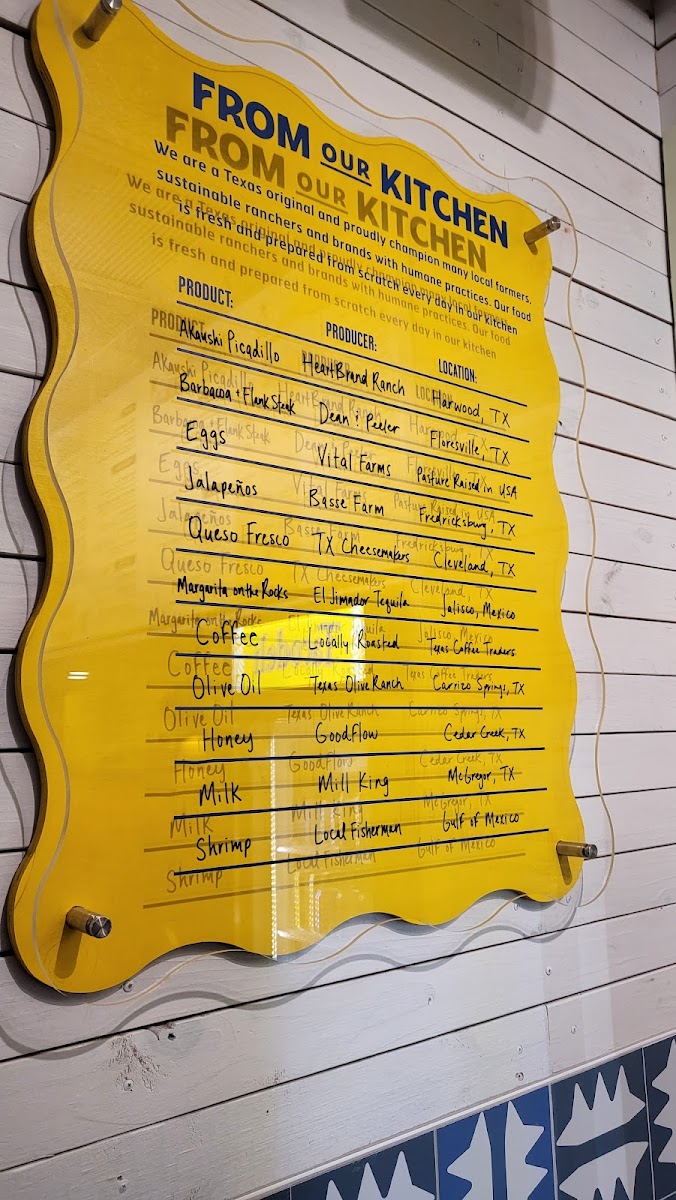 FROM OUR KITCHEN
We are a Texas original and proudly champion many local formers,
sustainable ranchers and brands with humane practices. Our food
is fresh and prepared from scratch every day in our kitchen
PRODUCT: PRODUCER: LOCATION:
Akaushi Picadillo HeartBrand Ranch Harwood, TX
Barbacoa + Flank Steak Dean & Peeler Floresville, TX
Eggs Vital Farms Pasture Raised in USA
Jalapeños Basse Farm Fredricksburg, TX
Queso Fresco TX Cheesemakers Cleveland, TX
Margarita on the Rocks El Jimador Tequila Jalisco, Mexico
Coffee Locally Roasted Texas Coffee Traders
Olive Oil Texas Olive Ranch Carrizo Springs, TX
Honey GoodFlow Cedar Creek, TX
Milk Mill King McGregor, TX
Shrimp Local Fisherman Gulf of Mexico